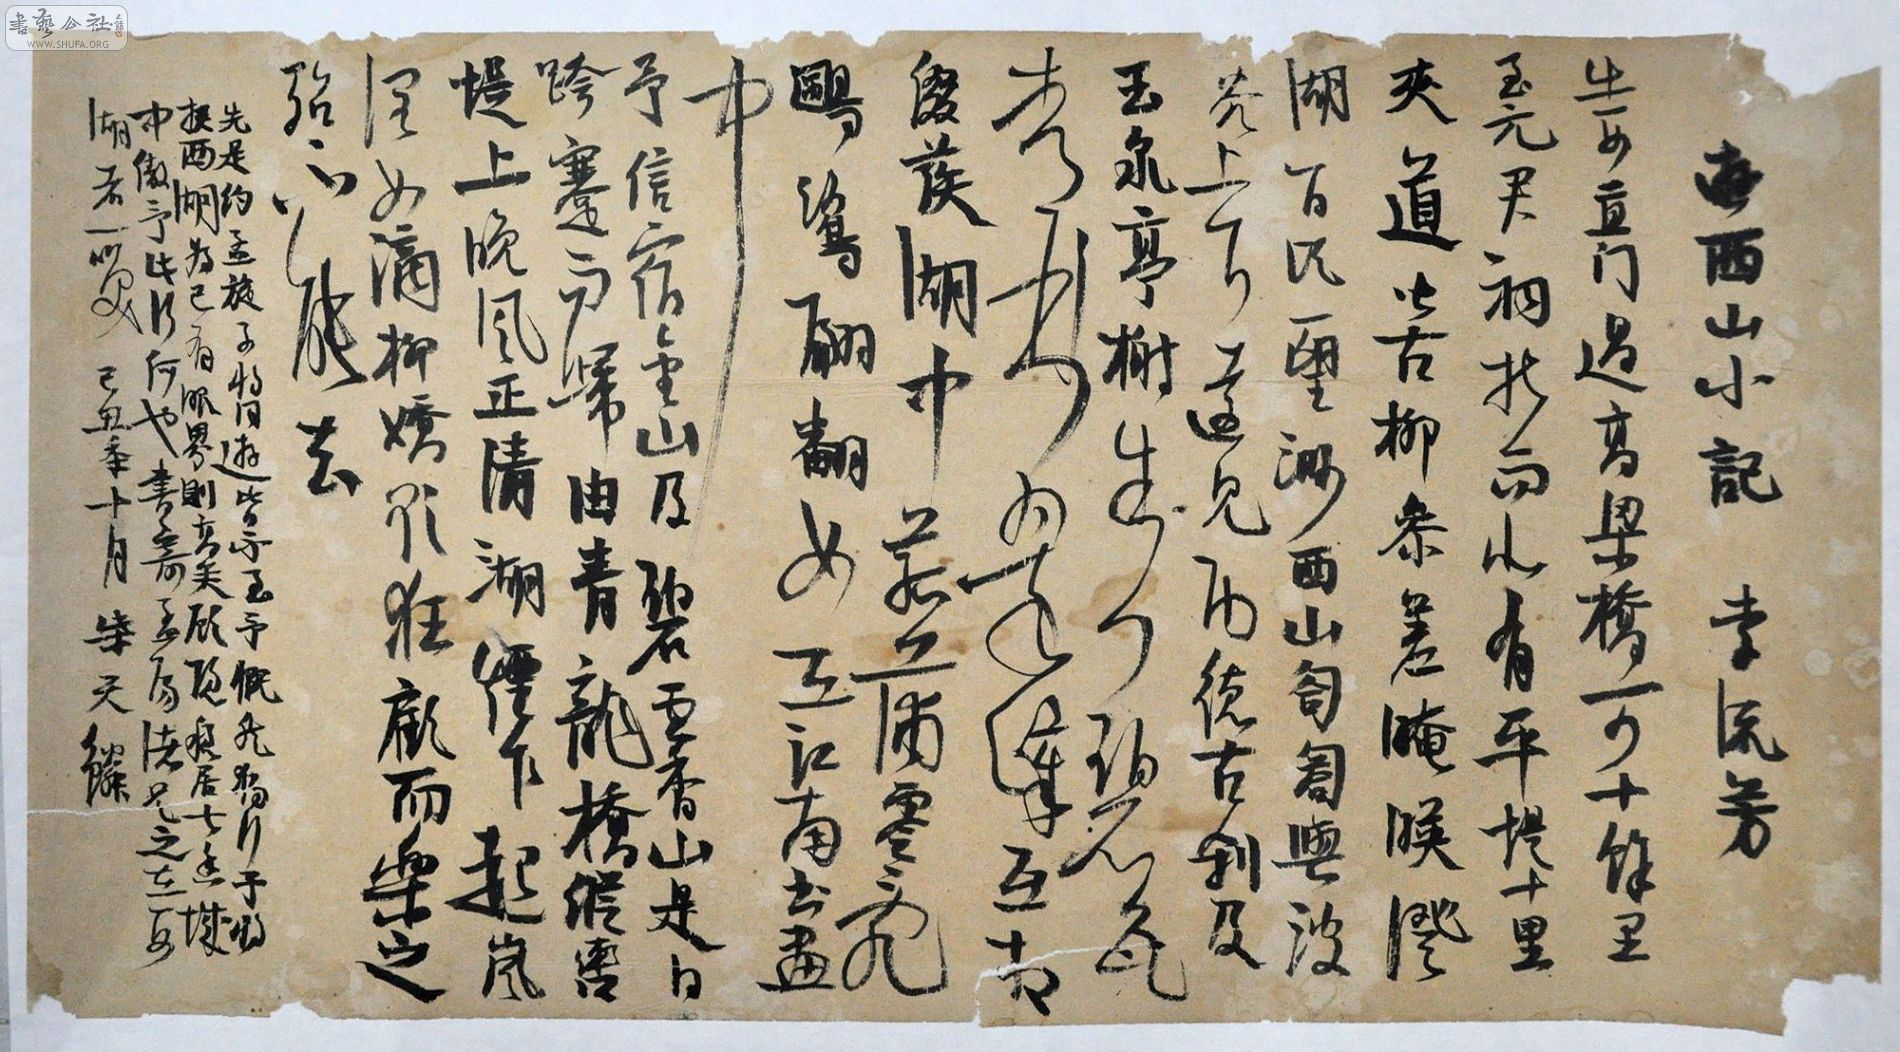 遊西山小記 李流芳
出西直门過高梁橋可十餘里
至元君祠折而北有平堤十里
夾道皆古柳參差晻暎澄
湖百頃一望渺西山匌匒與波
光上下遠見功德古刹及
玉泉亭榭朱門碧瓦
青林翠嶂互相
綴發湖中菰蒲零亂
鷗鷺翩翻如在江南圖畫
中
予信宿金山及碧雲香山是日
跨蹇而歸由青龍橋縱轡
堤上晚風正清湖煙乍起嵐
潤如滴柳嬌欲狂顧而樂之
殆不能去
先是約孟旋子將同遊皆不至予慨然獨行子將
挾西湖為己有眼界則高矣顧穩踞七香城
中傲予此行何也書寄孟陽諸兄之在西
湖者一笑 己丑年十月 柴天鳞
書藝公社
WWW.SHUFA.ORG